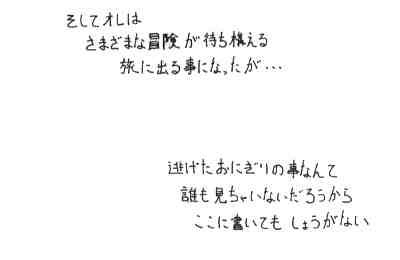 そしてオレは
さまざまな冒険が待ち構える
旅に出る事になったが…
逃げたおにぎりの事なんて
誰も見ちゃいないだろうから
ここに書いてもしょうがない